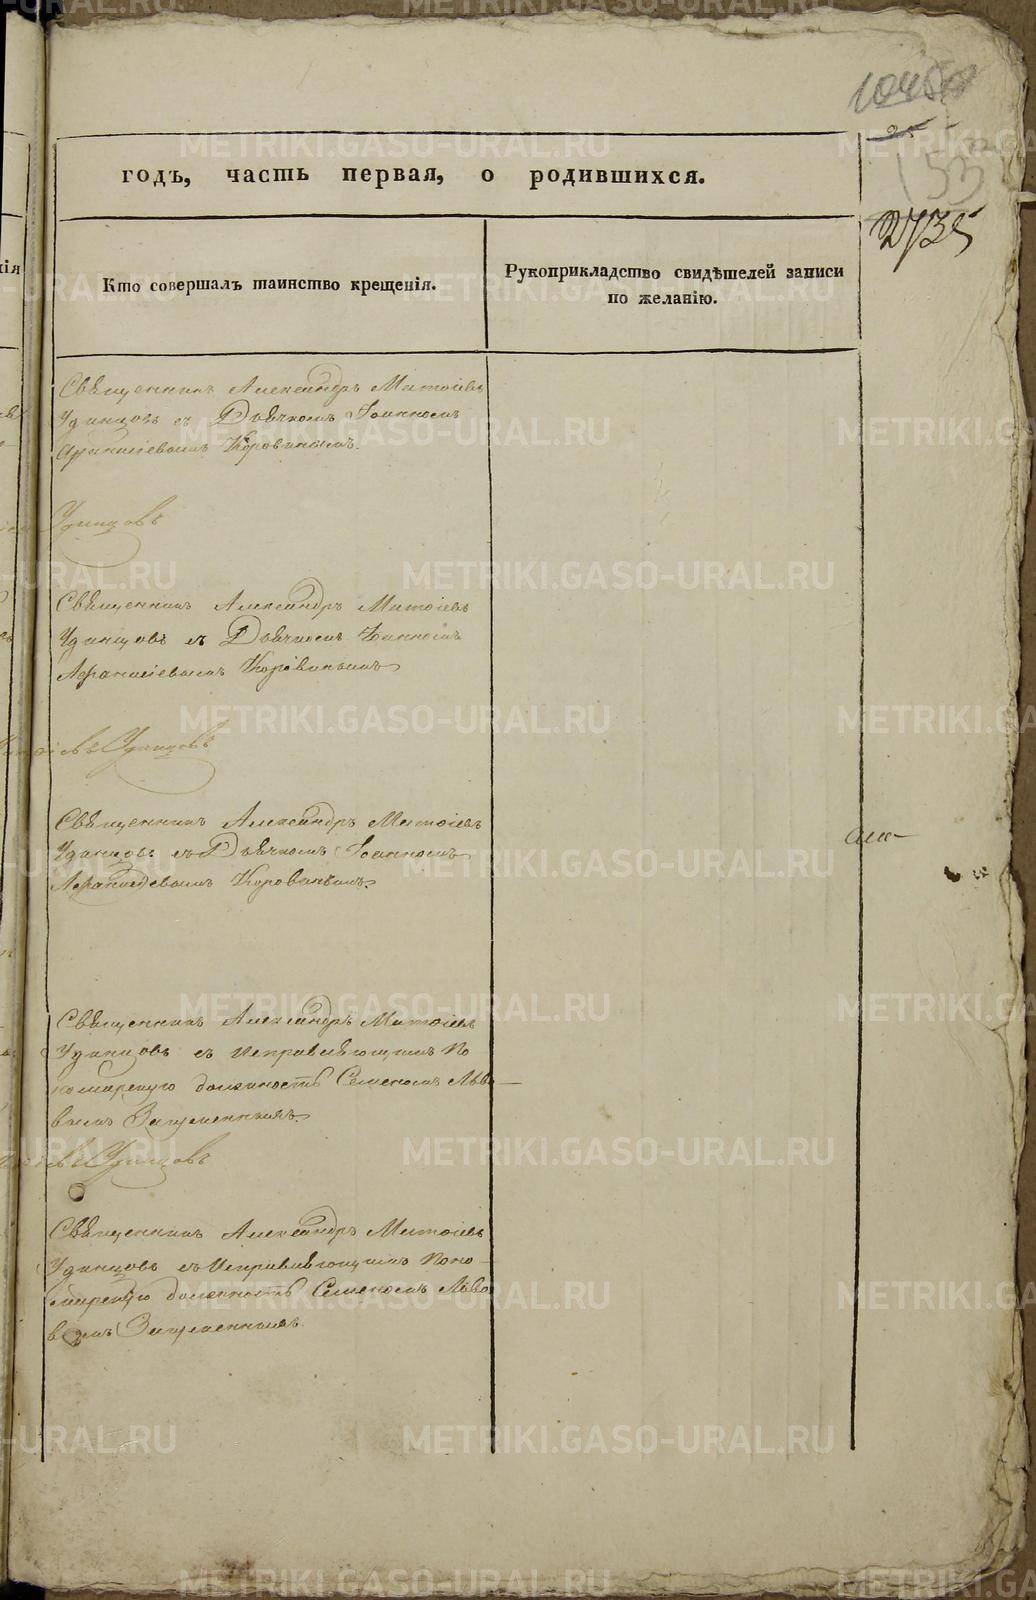 2735
годъ, часть первая, о родившихся.
Кто совершалъ таинство крещенія.
Рукоприкладство свидѣтелей записи
по желанію.
Священникъ Александръ Матѳіевъ
Удинцовъ съ Дьячкомъ Іоанномъ
Аѳанасіевымъ Коровинымъ.
Удинцовъ
Священникъ Александръ Матѳіевъ
Удинцовъ съ Дьячкомъ Іоанномъ
Аѳанасіевымъ Коровинымъ
Удинцовъ
Священникъ Александръ Матѳіевъ
Удинцовъ съ Дьячкомъ Іоанномъ
Коровинымъ.
Священникъ Александръ Матѳіевъ
Удинцовъ съ Исправляющимъ По
номарскую должность Семеномъ Льво
вымъ
Удинцовъ
Священникъ Александръ Матѳіевъ
Удинцовъ съ Исправляющимъ Поно
марскую должность Семеномъ Льво
вымъ
METRIKI.GASO-URAL.RU